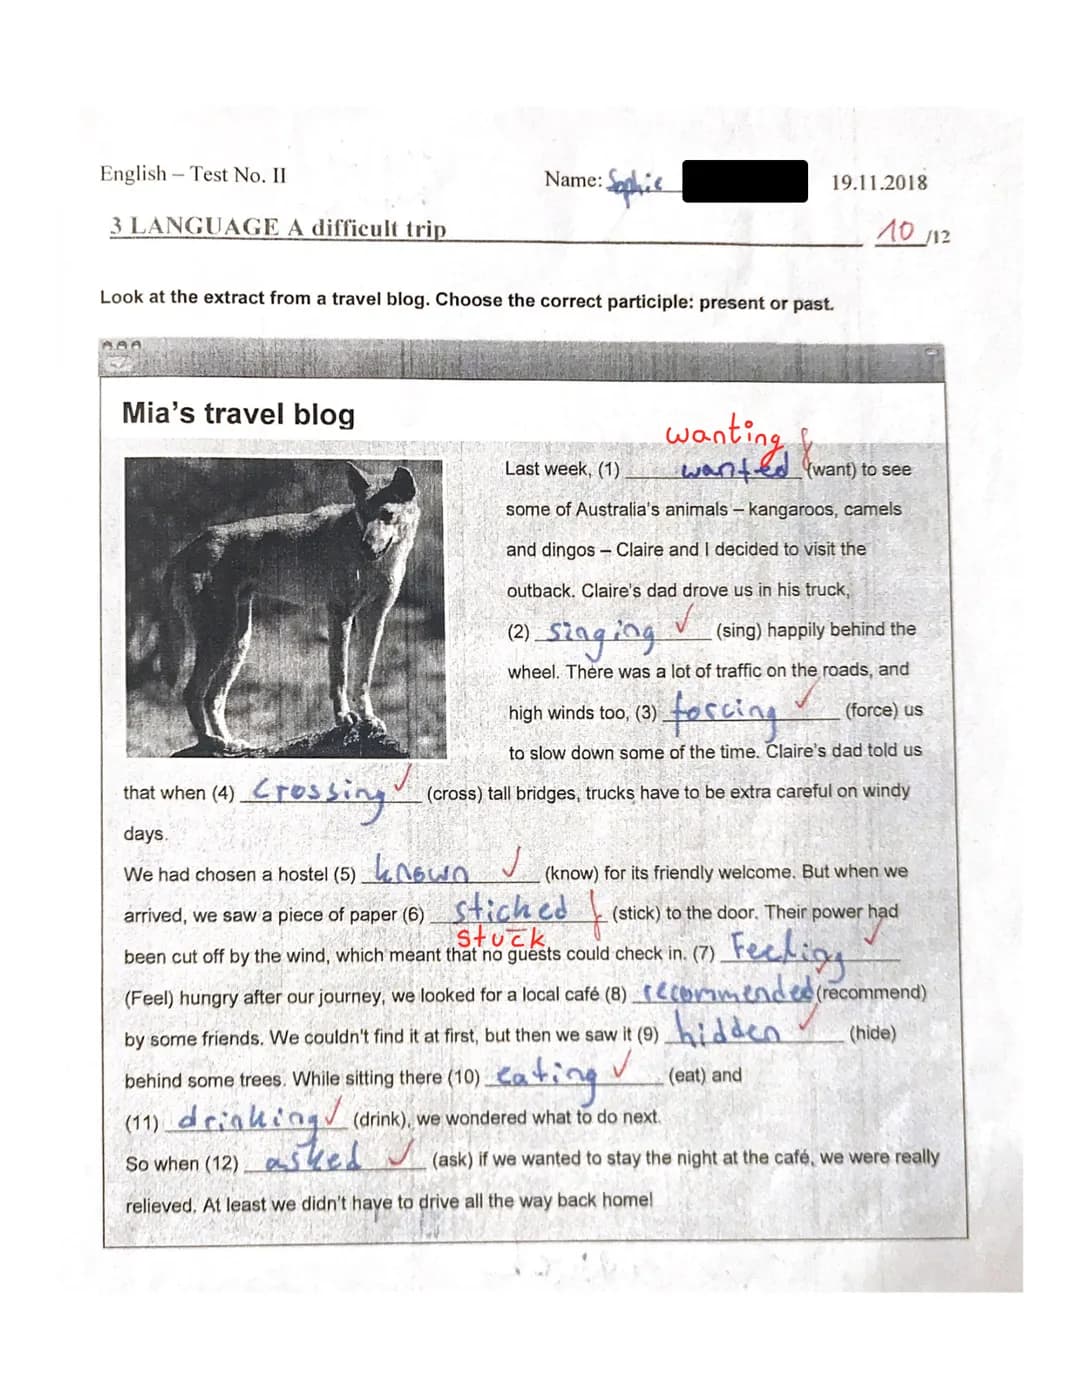 English – Test No. II Name: Sophie 19.11.2018
3 LANGUAGE A difficult trip 10 /12
Look at the extract from a travel blog. Choose the correct participle: present or past.
Mia's travel blog
wanting
Last week, (1) wanted (want) to see
some of Australia's animals – kangaroos, camels
and dingos – Claire and I decided to visit the
outback. Claire's dad drove us in his truck,
(2) singing (sing) happily behind the
wheel. There was a lot of traffic on the roads, and
high winds too, (3) forcing (force) us
to slow down some of the time. Claire's dad told us
that when (4) Crossing (cross) tall bridges, trucks have to be extra careful on windy
days.
We had chosen a hostel (5) known (know) for its friendly welcome. But when we
arrived, we saw a piece of paper (6) stiched (stick) to the door. Their power had
stuck
been cut off by the wind, which meant that no guests could check in. (7) Feeling
(Feel) hungry after our journey, we looked for a local café (8) recommended (recommend)
by some friends. We couldn't find it at first, but then we saw it (9) hidden (hide)
behind some trees. While sitting there (10) eating (eat) and
(11) drinking (drink), we wondered what to do next.
So when (12) asked (ask) if we wanted to stay the night at the café, we were really
relieved. At least we didn't have to drive all the way back home!